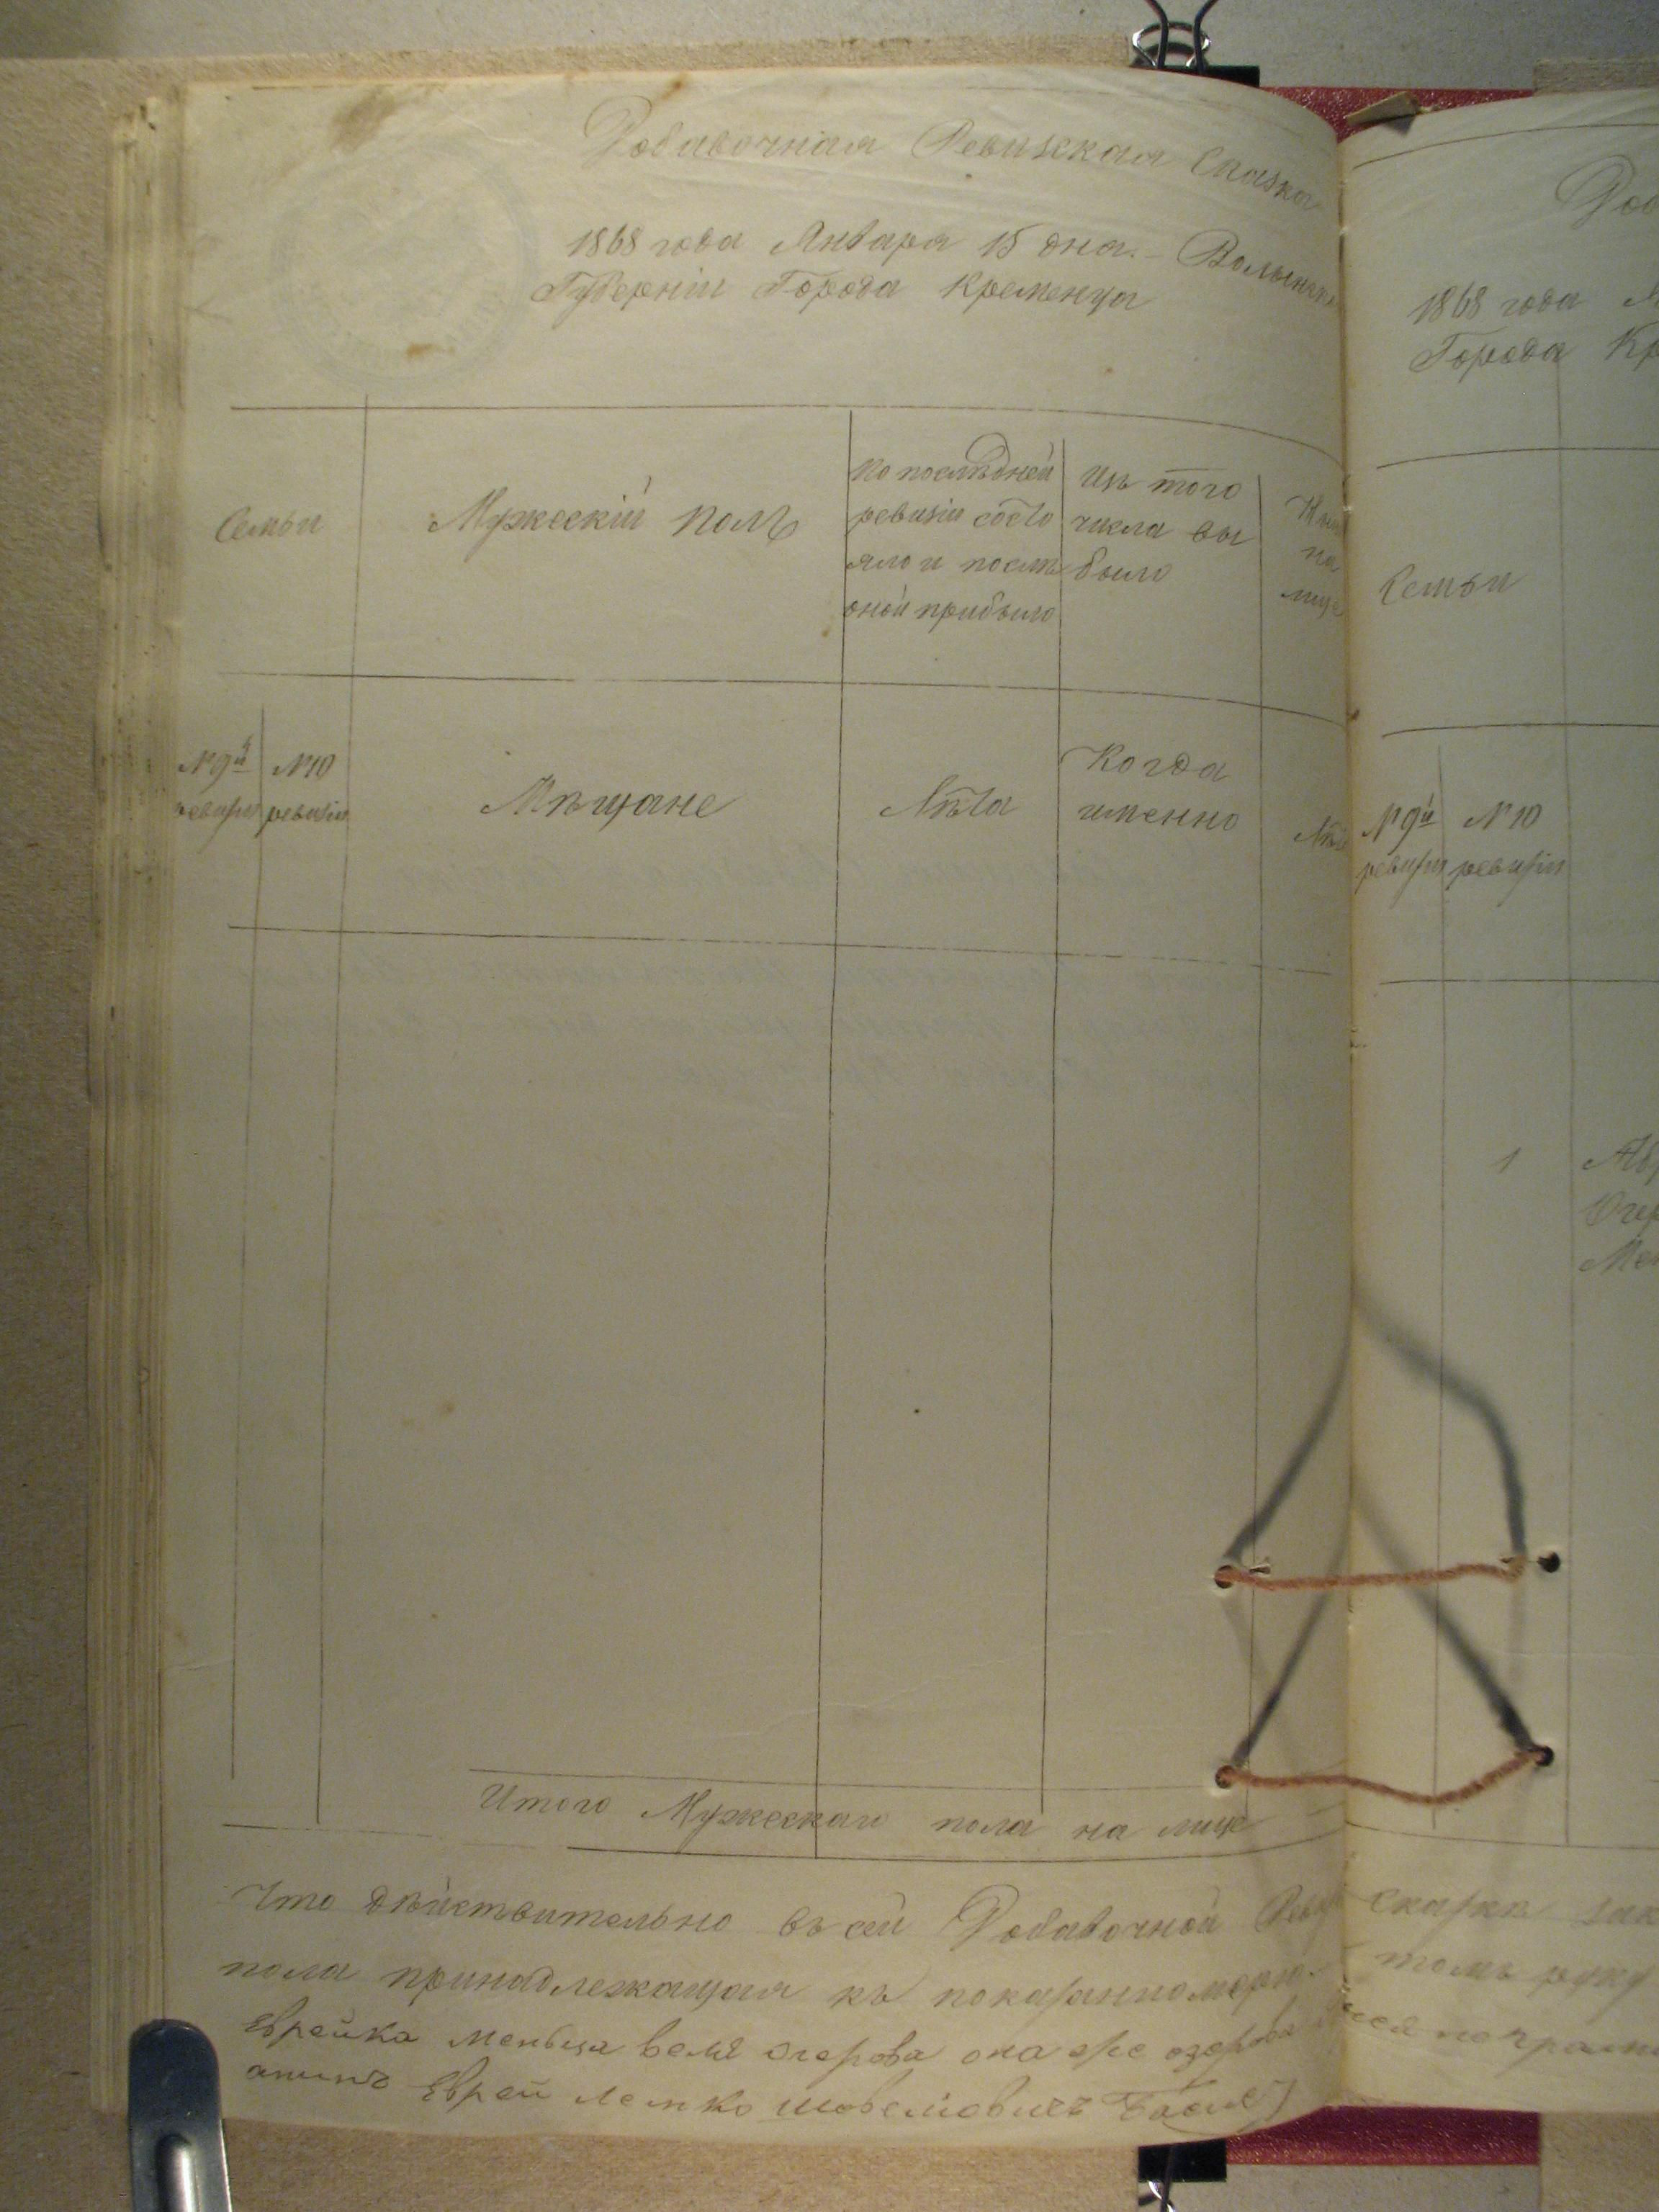 Добавочная Ревизская Сказка
1868 года Января 15 дня. – Волынской
Губерніи Города Кременца
Семьи
Мужескій полъ
По послѣдней
ревизіи состо
яло и послѣ
оной прибыло
Изъ того
числа вы
было
на
лице
№ 9й
ревизіи
№ 10
ревизіи
Мѣщане
Лѣта
Когда
именно
Лѣта
Итого Мужескаго пола на лице
Что дѣйствительно въ сей Добавочной
пола принадлежащая къ показанному
Еврейка Меньца Веля Очерова она же
Еврей Лемко
Доб
1868 года Я
Города Кр
Семьи
№ 9й
ревизіи
№ 10
ревизіи
1
Очер
Мен
сказки
томъ руку